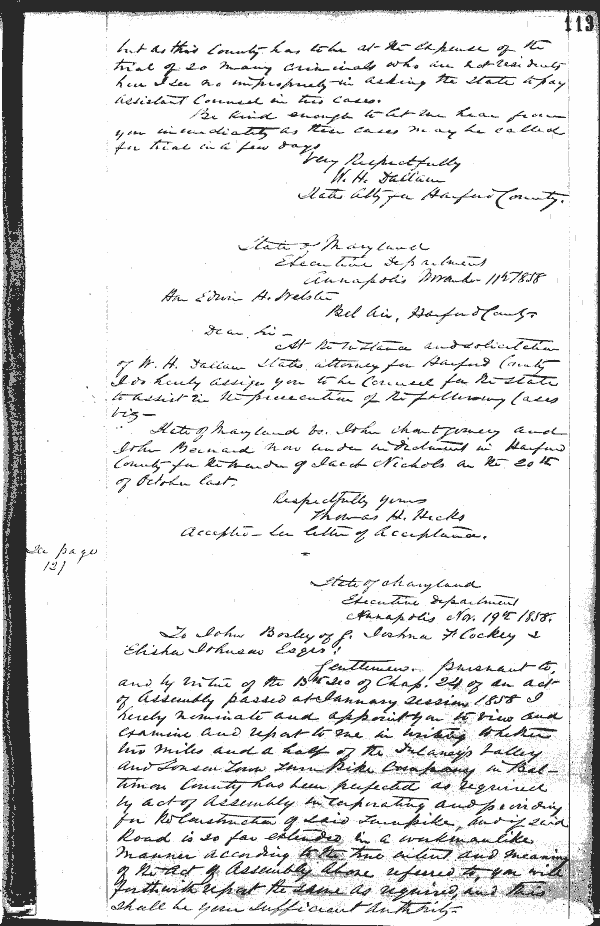 113
but as this County has to be at the expense of the
trial of so many criminals who are not residents
here I see no impropriety in asking the State to pay
assistant Counsel in this case.
Be kind enough to let me hear from
you immediately as these cases may be called
for trial in a few days
Very Respectfully
W. H. Dallam
States Atty for Harford County.
State of Maryland
Executive Department
Annapolis November 11th 1858
Hon Edwin H. Webster
Bel Air, Harford County
Dear Sir –
At the instance and solicitation
of W. H. Dallam States attorney for Harford County
I do hereby assign you to be Counsel for the State
to assist in the prosecution of the following Cases
viz –
State of Maryland vs. John Montgomery and
John Bernard now under indictment in Harford
County for the murder of Jacob Nichols on the 20th
of October last.
Respectfully yours
Thomas H. Hicks
Accepted – See letter of acceptance.
See page
121
State of Maryland
Executive Department
Annapolis Nov. 19th 1858.
To John Bosley of J. Joshua F Cockey &
Elisha Johnson Esqrs:
Gentlemen. Pursuant to,
and by virtue of the Sec of Chap. 24 of an act
of Assembly passed at January session 1858 I
hereby nominate and appoint you to view and
examine and report to me in writing whether
two miles and a half of the Dulaneys Valley
and Towson Town Turn Pike Company in Bal-
timore County has been perfected as required
by act of Assembly incorporating and providing
for the Construction of said Turnpike, and if said
Road is so far extended in a workmanlike
manner according to the true intent and meaning
of the act of Assembly above referred to, you will
forthwith report the same as required, and this
shall be your sufficient authority –